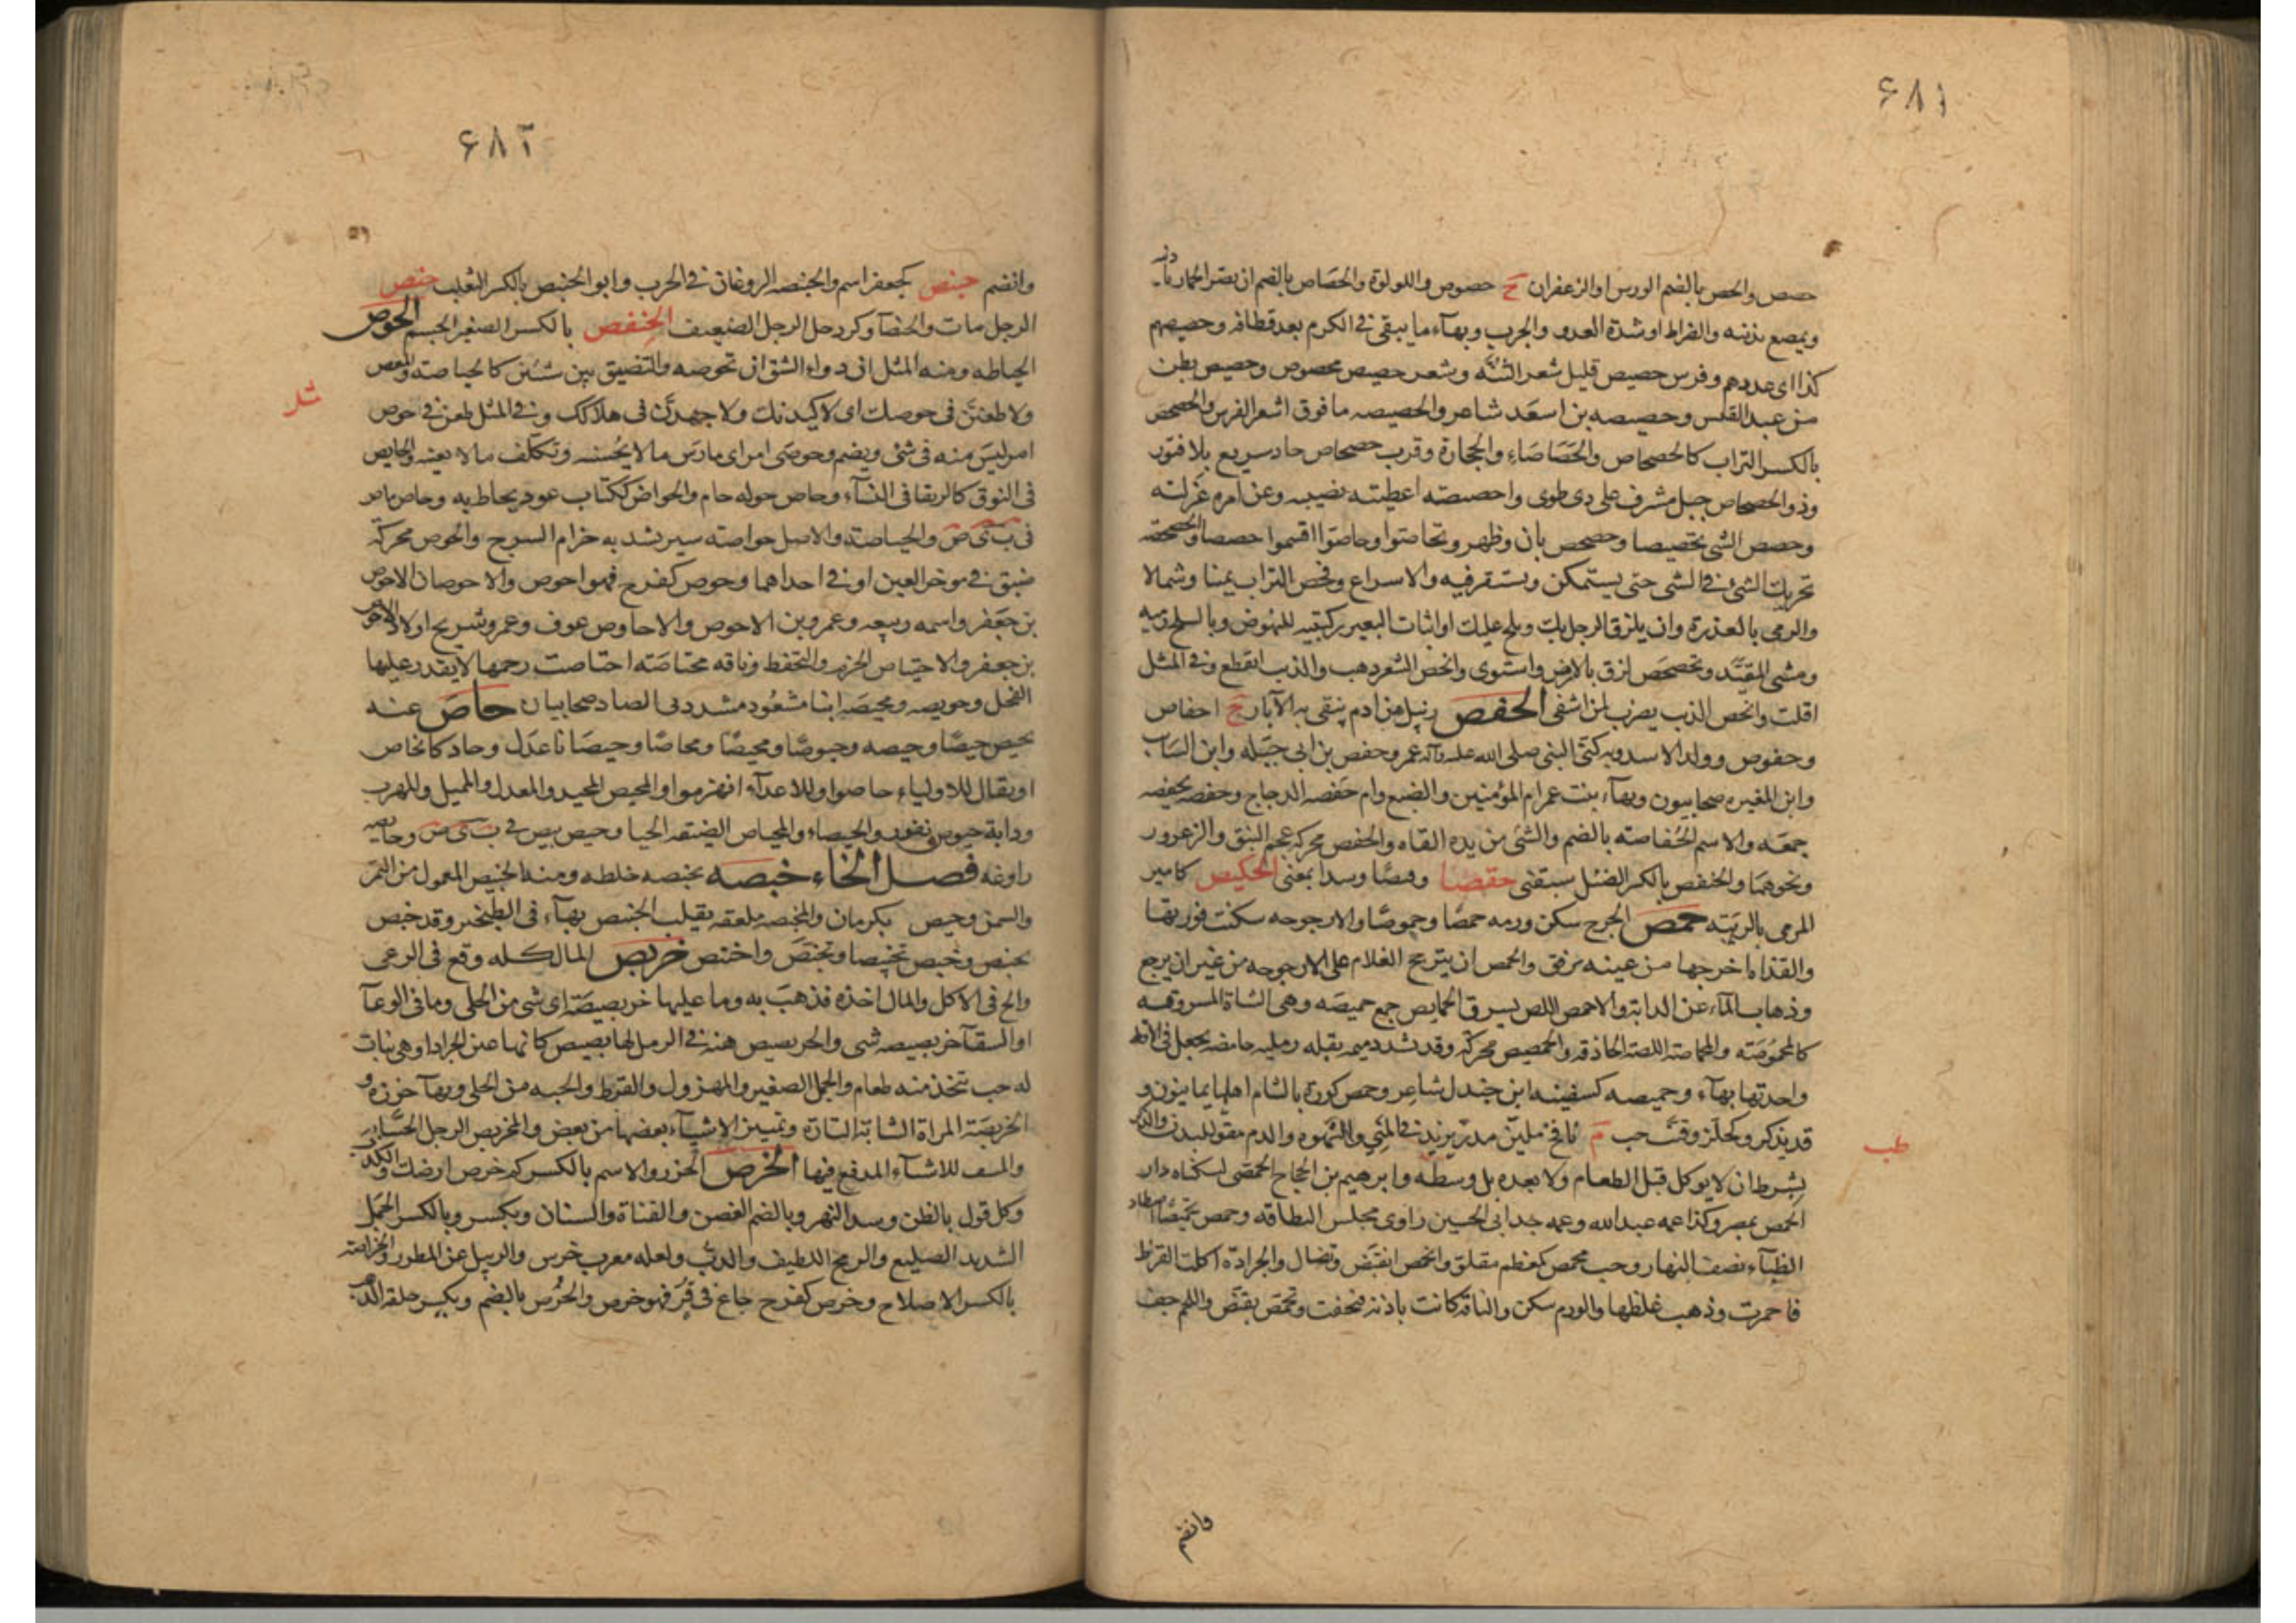 ۶۸۱
حصص والحص بالضم الورس او الزعفران ج حصوص واللولوة والحصاص بالضم ان يصر الحمار باذنيه
ويمصع بذنبه والضراط او شدة العدو والجرب وبهآء ما يبقى في الكرم بعد قطافه وحصيصهم
كذا اى عددهم وفرس حصيص قليل شعر الثنه وشعر حصيص محصوص وحصيص بطن
من عبد القيس وحصيصه بن اسعد شاعر والحصيصه ما فوق اشعر الفرس والحصحص
بالكسر التراب كالحصحاص والحصاصاء والحجارة وقرب حصحاص جاد سريع بلا فتور
وذو الحصحاص جبل مشرف على ذى طوى واحصصته اعطيته نصيبه وعن امره عزلته
وحصص الشى تحصيصا وحصحص بان وظهر وتحاصوا وحاصوا اقتسموا حصصا والحصحصه
تحريك الشئ في الشى حتى يستمكن ويستقر فيه والاسراع وفحص التراب يمينا وشمالا
والرمى بالعذرة وان يلزق الرجل بك ويلح عليك او اثبات البعير ركبتيه للنهوض وبالسلح رميه
ومشى المقيد وتحصحص لزق بالارض واستوى وانحص الشعر ذهب والذنب انقطع وفي المثل
افلت وانحص الذنب يضرب لمن اشفى الحفص زنبيل من ادم ينقى به الآبار ج احفاص
وحفوص وولد الاسد وبه كنى النبى صلى الله عليه وآله عمر وحفص بن ابى جبله وابن السايب
وابن المغيره صحابيون وبهآء بنت عمر ام المؤمنين والضبع وام حفصه الدجاج وحفصه يحفصه
جمعه والاسم الحفاصه بالضم والشى من يده القاه والحفص محركه عجم النبق والزعرور
ونحوهما والحنفص بالكسر الضئيل سبقنى حقصا وقبصا وشدا بمعنى الحكيص كامير
المرمى بالريبه حمص الجرح سكن ورمه حمصا وحموصا والارجوحه سكنت فورتها
والقذاة اخرجها من عينه برفق والحمص ان يترجح الغلام على الارجوحه من غير ان يرجح
وذهاب المآء عن الدابة والاحمص اللص يسرق الحمايص جمع حميصه وهى الشاة المسروقه
كالمحموصه والمحماصة اللصة الحاذقه والحمصيص محركة وقد تشدد ميمه بقله رمليه حامضه يجعل في الاقط
واحدتها بهآء وحميصه كسفينه ابن جندل شاعر وحمص كورة بالشام اهلها يمانيون و
قد يذكر وكحلز وقنب حب م نافخ ملين مدر يزيد في المنى والشهوه والدم مقو للبدن والذكر
بشرط ان لا يوكل قبل الطعام ولا بعده بل وسطه وابرهيم بن الحجاج الحمصى لسكناه دار
الحمص بمصر وكذا عمه عبد الله وعمه جد ابى الحسين راوى مجلس البطاقه وحمص تحميصا اصطاد
الظبآء نصف النهار وحب محمص كمعظم مقلق وانحمص انقبض وتضال والجرادة اكلت القرظ
فاحمرت وذهب غلظها والورم سكن والناقة كانت بادنة فنحفت وتحمص تقبض واللحم جف
طب
وانضم
۶۸۲
وانضم حنبص كجعفر اسم والحنبصه الروغان في الحرب وابو الحنبص بالكسر الثعلب حنص
الرجل مات والحنصآ وكجردحل الرجل الضعيف الحنفص بالكسر الصغير الجسم الحوص
الحياطه ومنه المثل ان دواء الشق ان تحوصه والتضييق بين شيئين كالحياصة والمغص
ولا طعنن في حوصك اى لاكيدنك ولا جهدن فى هلاكك وفي المثل طعن في حوص
امر ليس منه فى شئ ويضم وحوصى امر اى مارس ما لا يحسنه وتكلف ما لا يعنيه والحايص
فى النوق كالرتقا فى النسآء وحاص حوله حام والحواص ككتاب عود يحاط به وحاص باص
فى ب ى ص والحياصة والاصل حواصه سير يشد به حزام السرج والحوص محركة
ضيق في موخر العين او في احداهما وحوص كفرح فهو احوص والاحوصان الاحوص
بن جعفر واسمه ربيعه وعمرو بن الاحوص والاحاوص عوف وعمرو وشريح اولاد الاحوص
بن جعفر والاحتياص الحزم والتحفظ وناقه محتاصه احتاصت رحمها لا يقدر عليها
الفحل وحويصه ومحيصه ابنا مسعود مشددتى الصاد صحابيان حاص عنه
يحيص حيصا وحيصه وحيوصا ومحيصا ومحاصا وحيصانا عدل وحاد كانحاص
او يقال للاولياء حاصوا وللاعدآء انهزموا والمحيص المحيد والمعدل والمميل والمهرب
ودابة حيوص نفور والحيصاء والمحياص الضيقه الحيا وحيص بيص في ب ى ص وحايصه
راوغه فصل الخاء خبصه يخبصه خلطه ومنه الخبيص المعمول من التمر
والسمن وخبيص بكرمان والمخبصه ملعقه يقلب الخبيص بهآء فى الطنجير وقد خبص
يخبص وخبص تخبيصا وتخبص واختبص خربص المال كله وقع فى الرعى
والح فى الاكل والمال اخذه فذهب به وما عليها خربصيصة اى شى من الحلى وما فى الوعآ
او السقآ خربصيصه شى والخربصيص هنه في الرمل لها بصيص كانها عين الجراد او هى نبات
له حب تتخذ منه طعام والجمل الصغير والمهزول والقرط والحبه من الحلى وبهآ خرزه و
الخربصة المراة الشابة التارة وتمييز الاشيآء بعضها من بعض والمخربص الرجل الحساب
والمسف للاشيآء المدقع فيها الخرص الحزر والاسم بالكسر كم خرص ارضك والكذب
وكل قول بالظن وسد النهر وبالضم الغصن والقناة والسنان ويكسر وبالكسر الجمل
الشديد الضليع والرمح اللطيف والدب ولعله معرب خرس والزبيل عن المطرز والخراصه
بالكسر الاصلاح وخرص كفرح جاع فى قر فهو خرص والخرص بالضم ويكسر حلقه الذهب
مثل